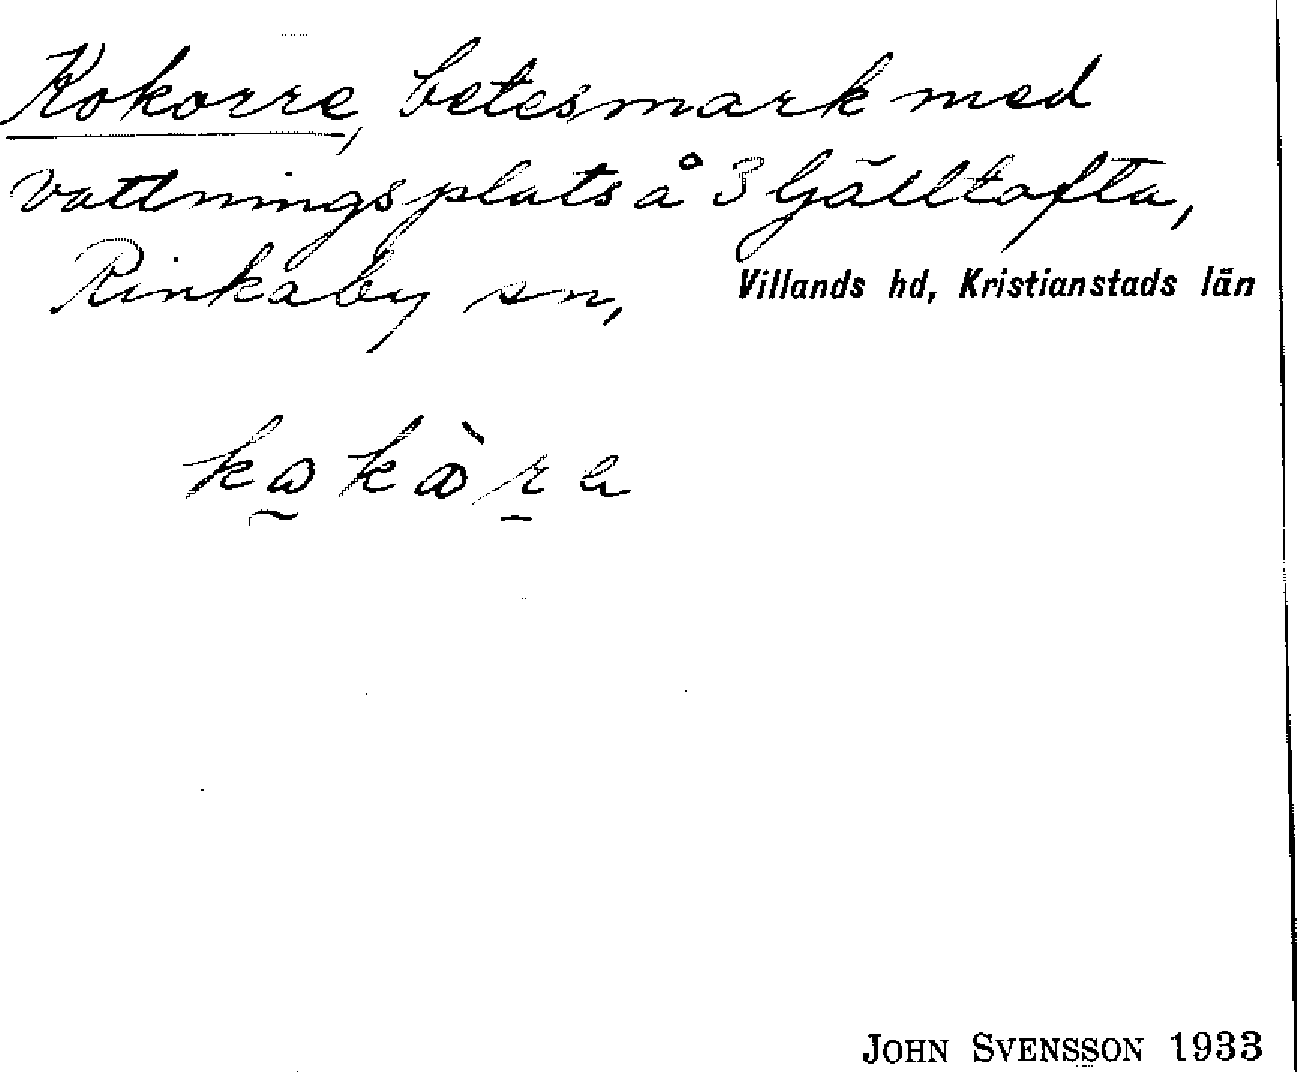 Kokorre, betesmark med
vattningsplats å 3 Ljälltofta,
Rinkaby sn, Villands hd, Kristianstads län
JOHN SVENSSON 1933